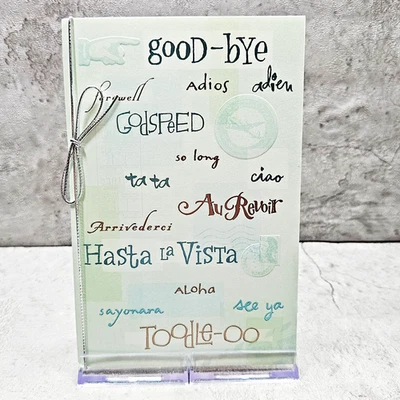 gooD-bye
Adios adieu
farewell
GODSPEED
so long
ta ta ciao
Au Revoir
Arrivederci
Hasta la Vista
Aloha
sayonara see ya
Toodle-oo